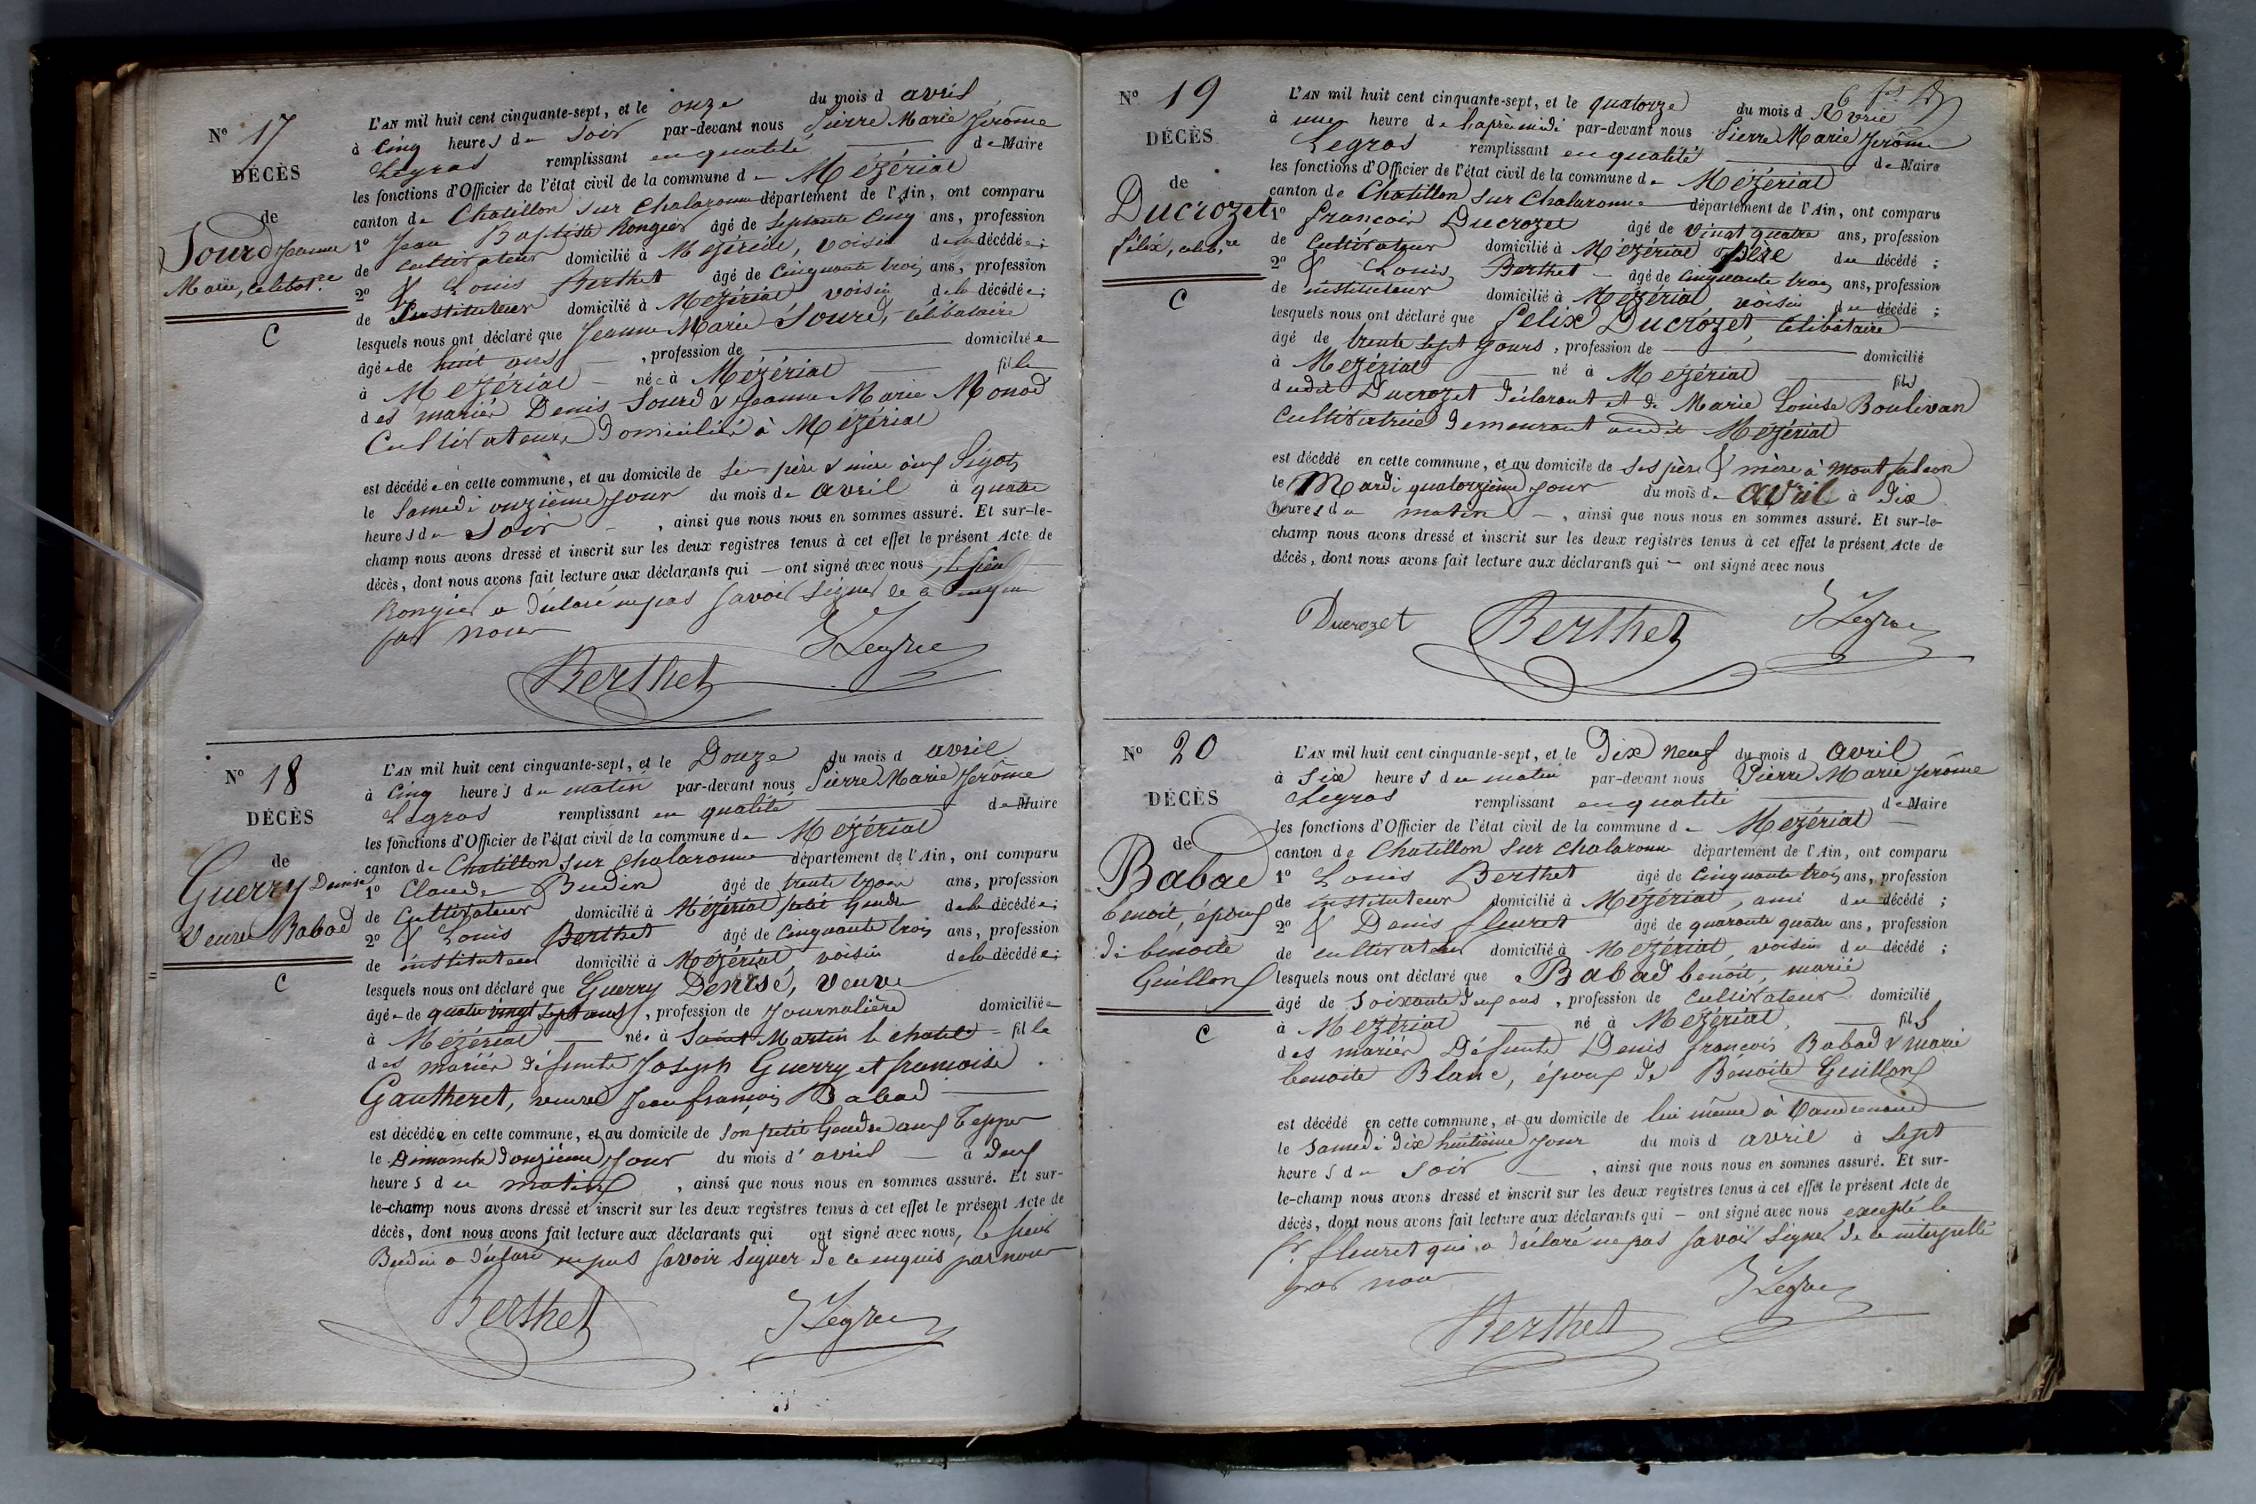 N° 17
DÉCÈS
de
Sourd Jeanne
Marie, celibat.re
C
L'AN mil huit cent cinquante-sept, et le onze du mois d avril
à Cinq heures du Soir par-devant nous Pierre Marie Jerôme
Legras remplissant en qualité de Maire
les fonctions d'Officier de l'état civil de la commune de Mézériat
canton de Chatillon sur Chalaronne département de l'Ain, ont comparu
1° Jean Baptiste Rongier âgé de Septante Cinq ans, profession
de Cultivateur domicilié à Mézériat, voisin de la décédée;
2° & Louis Berthet âgé de Cinquante trois ans, profession
de Instituteur domicilié à Mézériat voisin de la décédée;
lesquels nous ont déclaré que Jeanne Marie Sourd, célibataire
âgée de huit ans, profession de domiciliée
à Mézériat née à Mézériat fille
des mariés Denis Sourd & Jeanne Marie Monod
Cultivateurs Domiciliés à Mézériat
est décédée en cette commune, et au domicile de ses père & mère aux
le Samedi onzième jour du mois de avril à quatre
heures du Soir, ainsi que nous nous en sommes assuré. Et sur-le-
champ nous avons dressé et inscrit sur les deux registres tenus à cet effet le présent Acte de
décès, dont nous avons fait lecture aux déclarants qui — ont signé avec nous, le sieur
Rongier a déclaré ne pas savoir signer de ce enquis
par nous
Berthet
JLegras
N° 18
DÉCÈS
de
Guerry Denise
Veuve Babad
C
L'AN mil huit cent cinquante-sept, et le Douze du mois d avril
à Cinq heures du matin par-devant nous Pierre Marie Jerôme
Legras remplissant en qualité de Maire
les fonctions d'Officier de l'état civil de la commune de Mézériat
canton de Chatillon sur Chalaronne département de l'Ain, ont comparu
1° Claude Budin âgé de trente trois ans, profession
de Cultivateur domicilié à Mézériat petit Gendre de la décédée;
2° & Louis Berthet âgé de Cinquante trois ans, profession
de instituteur domicilié à Mézériat voisin de la décédée;
lesquels nous ont déclaré que Guerry Denise, Veuve
âgée de quatre vingt sept ans, profession de Journalière domiciliée
à Mézériat née à Saint Martin le chatel fille
des mariés défunts Joseph Guerry et françoise
Gautheret, veuve Jean françois Babad
est décédée en cette commune, et au domicile de son petit Gendre aux Teppes
le Dimanche Douzième jour du mois d'avril à deux
heures du matin, ainsi que nous nous en sommes assuré. Et sur-
le-champ nous avons dressé et inscrit sur les deux registres tenus à cet effet le présent Acte de
décès, dont nous avons fait lecture aux déclarants qui ont signé avec nous, le sieur
Budin a déclaré ne pas savoir signer de ce enquis par nous
Berthet
JLegras
N° 19
DÉCÈS
de
Ducrozet
félix, célib.re
C
L'AN mil huit cent cinquante-sept, et le quatorze du mois d Avril
à une heure de l'après midi par-devant nous Pierre Marie Jerôme
Legras remplissant en qualité de Maire
les fonctions d'Officier de l'état civil de la commune de Mézériat
canton de Chatillon sur Chalaronne département de l'Ain, ont comparu
1° françois Ducrozet âgé de vingt quatre ans, profession
de Cultivateur domicilié à Mézériat Père du décédé;
2° & Louis Berthet âgé de Cinquante trois ans, profession
de instituteur domicilié à Mézériat voisin du décédé;
lesquels nous ont déclaré que felix Ducrozet, Célibataire
âgé de trente sept jours, profession de domicilié
à Mézériat né à Mézériat fils
dudit Ducrozet déclarant et de Marie Louise Boulivan
Cultivatrice demeurant audit Mézériat
est décédé en cette commune, et au domicile de ses père & mère à Montfalcon
le Mardi quatorzième jour du mois de avril à dix
heures du matin, ainsi que nous nous en sommes assuré. Et sur-le-
champ nous avons dressé et inscrit sur les deux registres tenus à cet effet le présent Acte de
décès, dont nous avons fait lecture aux déclarants qui — ont signé avec nous
Ducrozet
Berthet
JLegras
N° 20
DÉCÈS
de
Babad
benoit, époux
de benoite
Guillon
C
L'AN mil huit cent cinquante-sept, et le Dix neuf du mois d avril
à Six heures du matin par-devant nous Pierre Marie Jerôme
Legras remplissant en qualité de Maire
les fonctions d'Officier de l'état civil de la commune de Mézériat
canton de Chatillon sur chalaronne département de l'Ain, ont comparu
1° Louis Berthet âgé de Cinquante trois ans, profession
de instituteur domicilié à Mézériat, ami du décédé;
2° & Denis fleuret âgé de quarante quatre ans, profession
de cultivateur domicilié à Mézériat, voisin du décédé;
lesquels nous ont déclaré que Babad benoit, marié
âgé de soixante deux ans, profession de Cultivateur domicilié
à Mézériat né à Mézériat, fils
des mariés Défunts Denis françois Babad & marie
benoite Blanc, époux de Bénoite Guillon
est décédé en cette commune, et au domicile de lui même à
le Samedi Dix huitième jour du mois d avril à sept
heures du Soir, ainsi que nous nous en sommes assuré. Et sur-
le-champ nous avons dressé et inscrit sur les deux registres tenus à cet effet le présent Acte de
décès, dont nous avons fait lecture aux déclarants qui — ont signé avec nous excepté le
sr. fleuret qui a déclaré ne pas savoir signer de ce interpellé
par nous
JLegras
Berthet